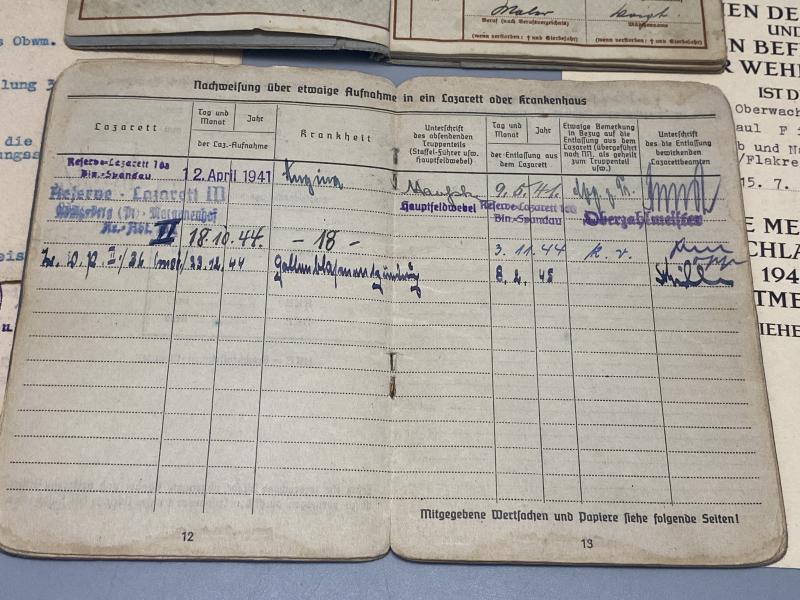 Maler
Beruf (nach Berufsverzeichnis)
(wenn verstorben: † und Sterbejahr)
(wenn verstorben: † und Sterbejahr)
s Obwm.
lung 3
die
EN DE
UND
N BEF
R WEHR
IST D
Oberwach
aul F
b und N
/Flakre
15. 7.
E ME
CHLA
194
TME
IEHE
Nachweisung über etwaige Aufnahme in ein Lazarett oder Krankenhaus
Lazarett
Tag und Monat
Jahr
der Laz.-Aufnahme
Krankheit
Unterschrift des absendenden Truppenteils (Staffel-Führer usw. Hauptfeldwebel)
Tag und Monat
Jahr
der Entlassung aus dem Lazarett
Etwaige Bemerkung in Bezug auf die Entlassung aus dem Lazarett (übergeführt nach ?), als geheilt zum Truppenteil usw.)
Unterschrift des die Entlassung bewirkenden Lazarettbeamten
Reserve-Lazarett 108
Bln.-Spandau
12. April 1941
Angina
9. 5. 41.
Hauptfeldwebel
Reserve-Lazarett 108
Bln.-Spandau
Oberzahlmeister
Reserve-Lazarett III
II
18.10.44.
- 18 -
3. 11. 44
k. v.
22. 12. 44
Gallenblasenentzündung
8. 2. 45
Mitgegebene Wertsachen und Papiere siehe folgende Seiten!
12
13